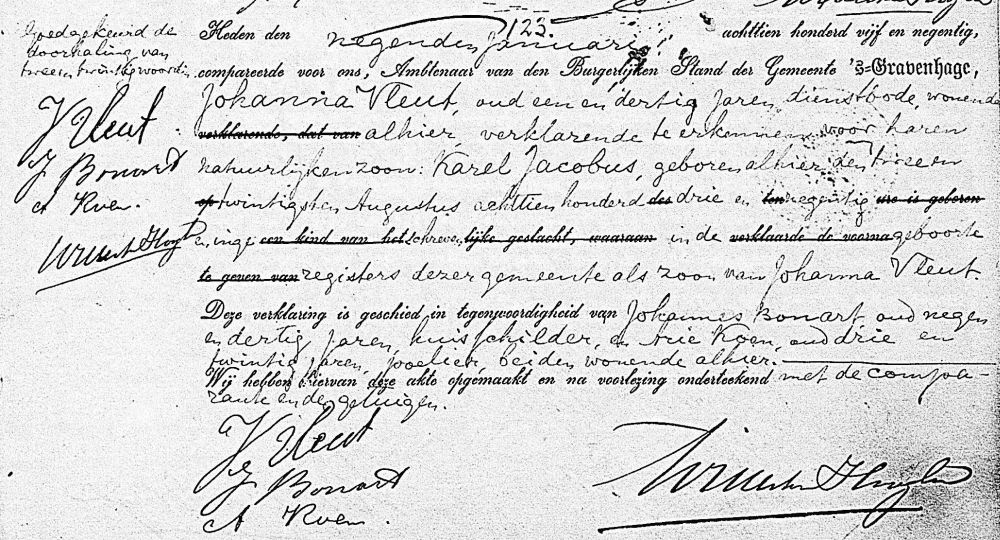 Goedgekeurd de
doorhaling van
twee en twintig woorden
J Vleut
J Bonart
A Koen.
123.
Heden den negenden Januari, achttien honderd vijf en negentig,
compareerde voor ons, Ambtenaar van den Burgerlijken Stand der Gemeente 's-Gravenhage,
Johanna Vleut, oud een en dertig jaren, dienstbode, wonende
verklarende, dat van alhier, verklarende te erkennen voor haren
natuurlijken zoon: Karel Jacobus, geboren alhier den twee en
op twintigsten Augustus achttien honderd des drie en ten negentig ure is geboren
en inge een kind van het schreven lijke geslacht, waaraan in de verklaarde de voorna geboorte
te geven van registers dezer gemeente als zoon van Johanna Vleut.
Deze verklaring is geschied in tegenwoordigheid van Johannes Bonart, oud negen
en dertig jaren, huisschilder, en Arie Koen, oud drie en
twintig jaren, poelier, beiden wonende alhier.
Wij hebben hiervan deze akte opgemaakt en na voorlezing onderteekend met de compa-
rante en de getuigen.
J Vleut
J Bonart
A Koen.